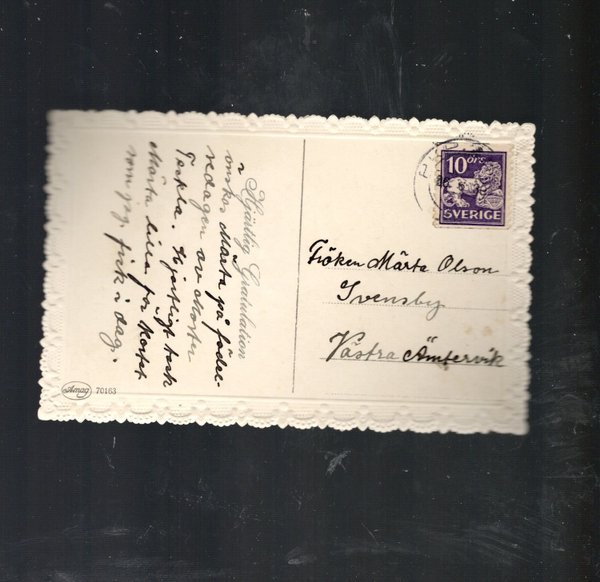 Hjärtlig Gratulation
önskas Märta på födel-
sedagen av Moster
Tekla. Hjärtligt tack
Märta lilla för kortet
som jag fick i dag.
Amag 70163
10 ÖRE
SVERIGE
Fröken Märta Olson
Svensby
Västra Ämtervik